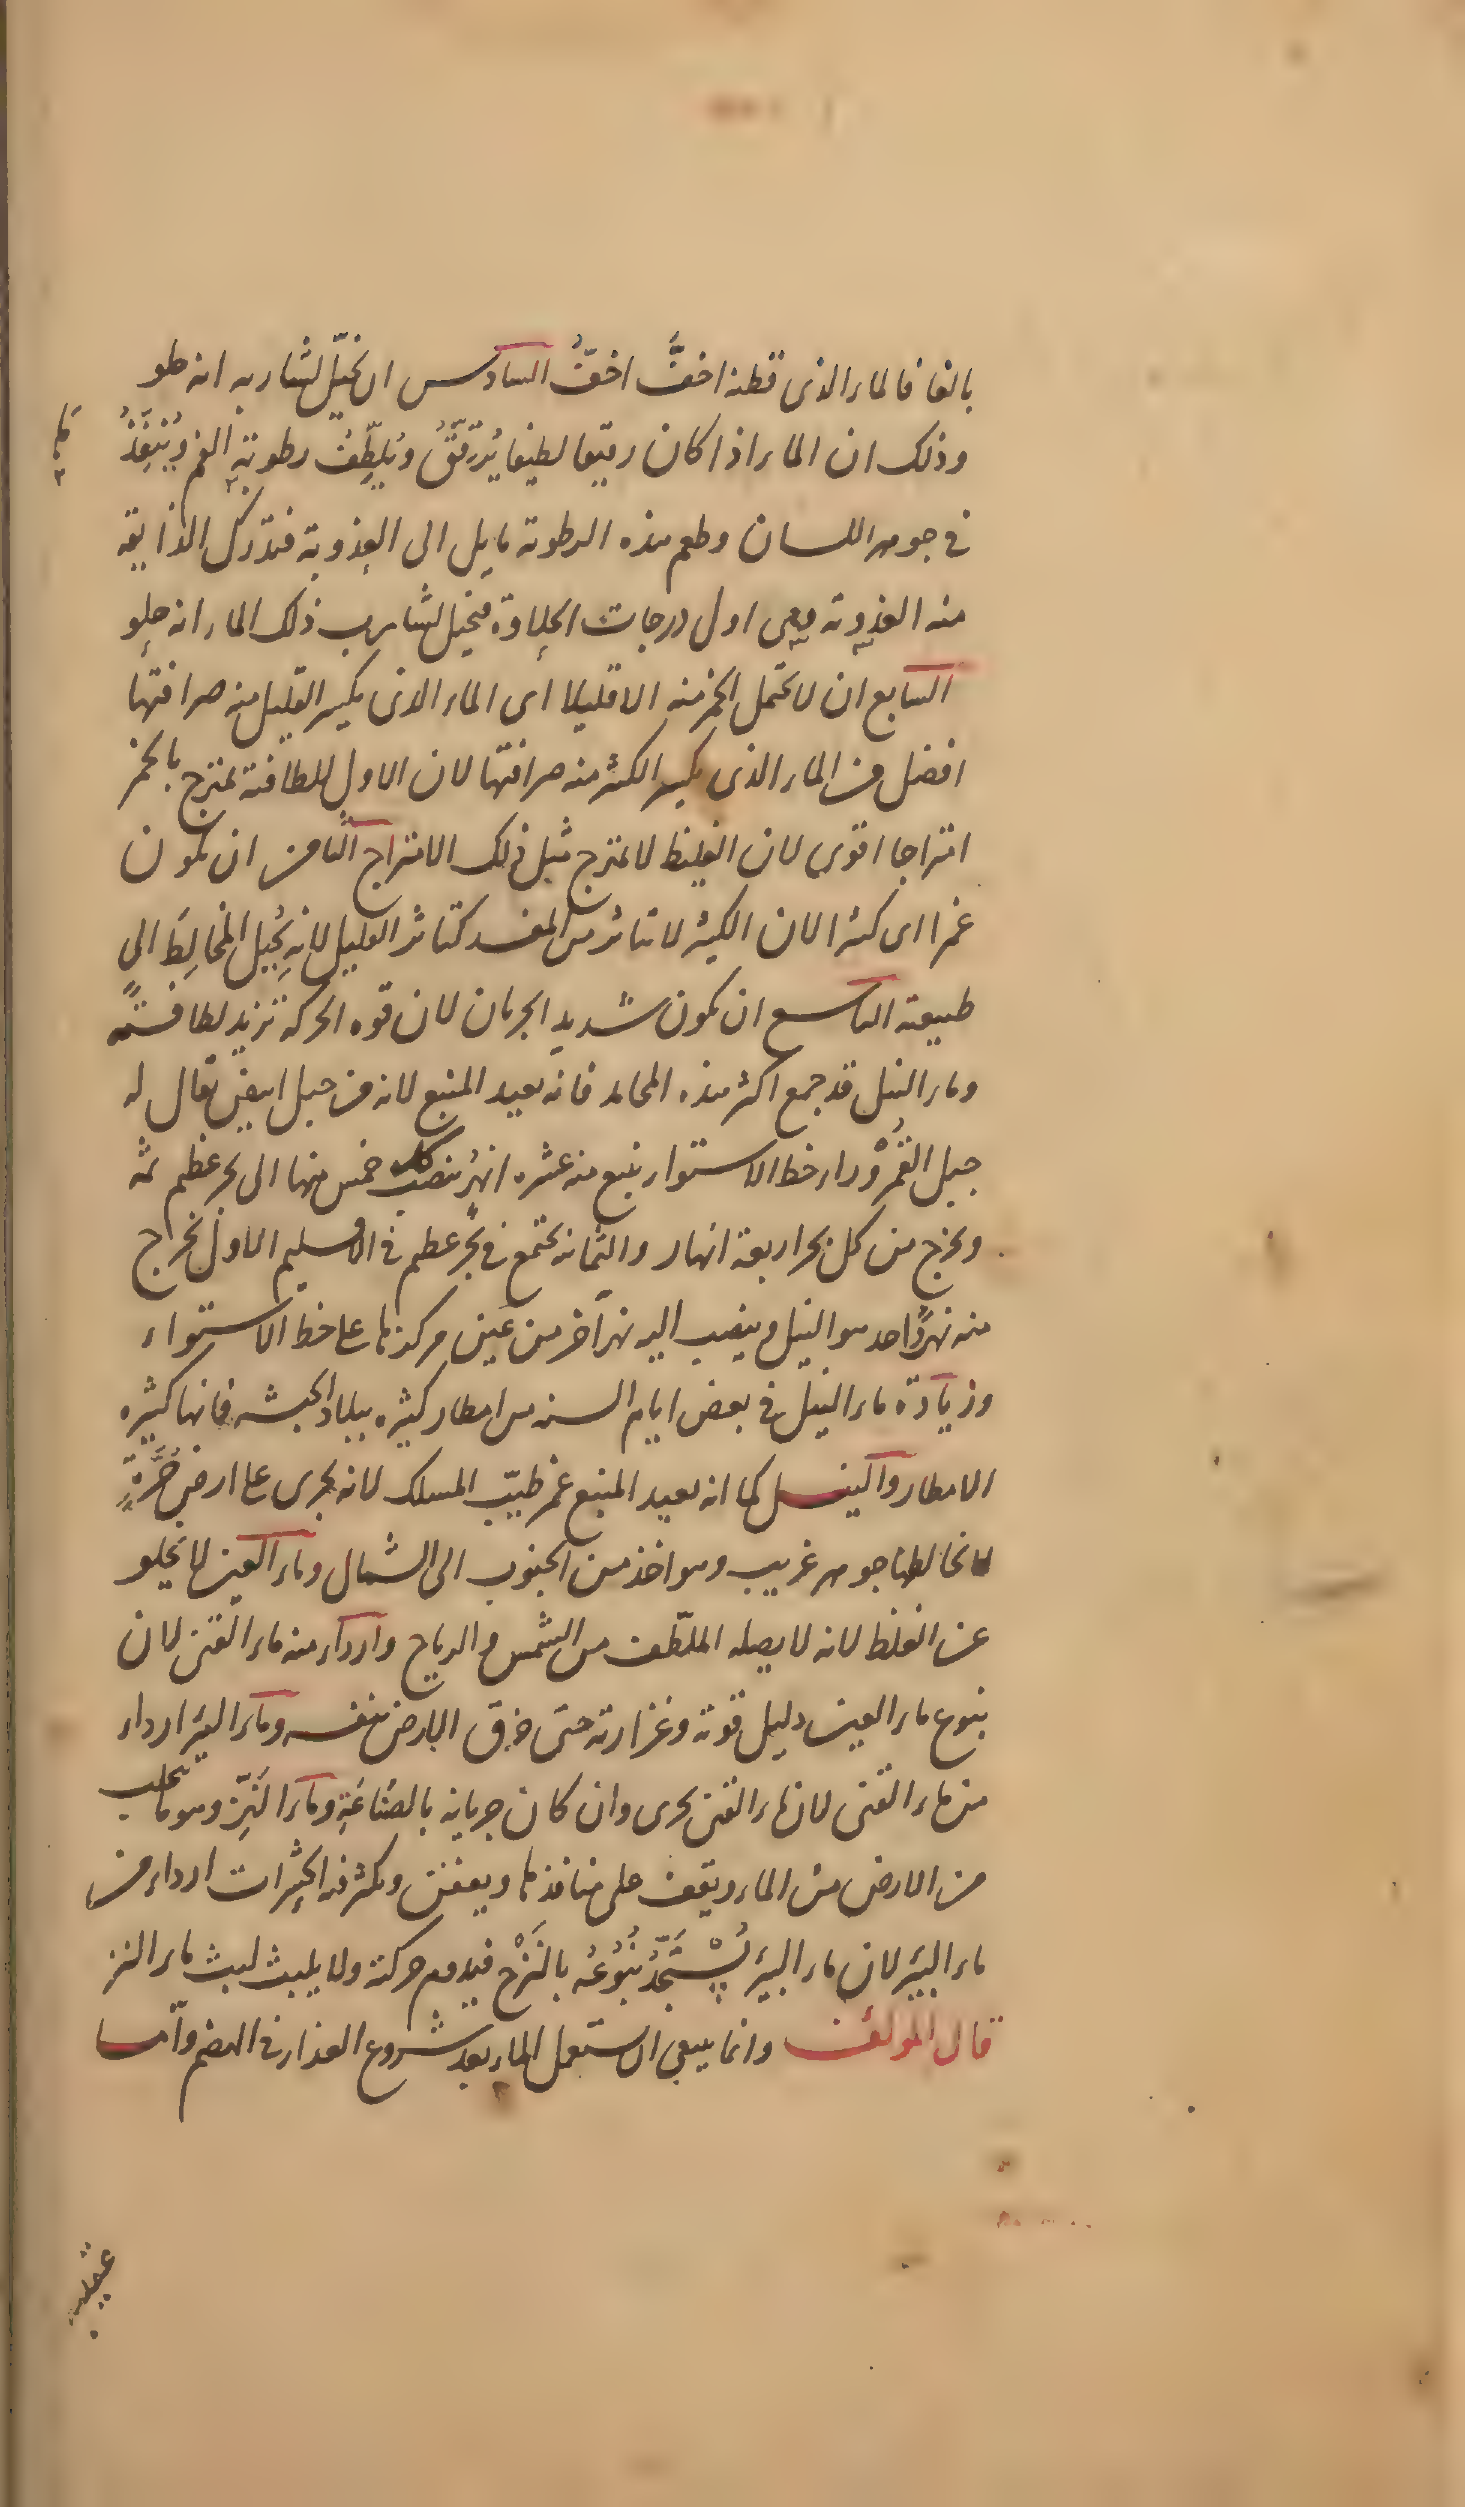 بالغا فالماء الذى قطنه اخفَّ اخفُّ السادس ان يخيّل لشاربه انه حلو
وذلك ان الماء اذا كان رقيقا لطيفا يُرَقِّقُ ويُلطِّفُ رطوبة الفم ويُنَفِّذُ
فى جوهر اللسان وطعم هذه الرطوبة مايل الى العذوبة فتدرك الذايقة
منه العذوبة وهى اول درجات الحلاوة فيخيل لشارب ذلك الماء انه حلو
السابع ان لا يحتمل الخمر منه الا قليلا اى الماء الذى يكسر القليل منه صرافتها
افضل من الماء الذى يكسر الكثير منه صرافتها لان الاول للطافته يمتزج بالخمر
امتزاجا اقوى لان الغليظ لا يمتزج مثل ذلك الامتزاج الثامن ان يكون
غمرا اى كثيرا لان الكثير لا يتاثر من المفسد كتاثر القليل لانه يُحيل المخالِطَ الى
طبيعته التاسع ان يكون شديد الجريان لان قوه الحركه تزيد لطافته
وماء النيل قد جمع اكثر هذه المحامد فانه بعيد المنبع لانه من جبل ابيض يقال له
جبل القُمْر وراء خط الاستواء ينبع منه عشره انهر ينصب كل خمس منها الى بحر عظيم ثمه
ويخرج من كل بحر اربعة انهار والثمانيه يجتمع فى بحر عظيم فى الاقليم الاول يخرج
منه نهر واحد هو النيل وينصب اليه نهر آخر من عين مركزها على خط الاستواء
وزيادة ماء النيل فى بعض ايام السنه من امطار كثيره ببلاد الحبشه فانها كثيره
الامطار والنيل كما انه بعيد المنبع غمر طيّب المسلك لانه يجرى على ارض حُرَّةٍ
لا يخالطها جوهر غريب وهو اخذ من الجنوب الى الشمال وماء العين لا يخلو
عن الغلظ لانه لا يصله الملطّف من الشمس والرياح واردأ منه ماء القنى لان
ينبوع ماء العين دليل قوته وغزارته حتى خرق الارض بنفسه وماء البير ارداء
من ماء القنى لان ماء القنى يجرى وان كان جريانه بالصناعَةِ وماء النَزّ وهو ما يتحلب
من الارض من الماء ويقف على منافذها ويعفن ويكثر فيه الحشرات ارداء من
ماء البير لان ماء البير يُسْتَجَدُّ نُبُوعُه بالنَزْح فيدوم حركته ولا يلبث لبث ماء النز
قال المولف وانما ينبغى ان يستعمل الماء بعد شروع الغذاء فى الهضم واما
عقيب